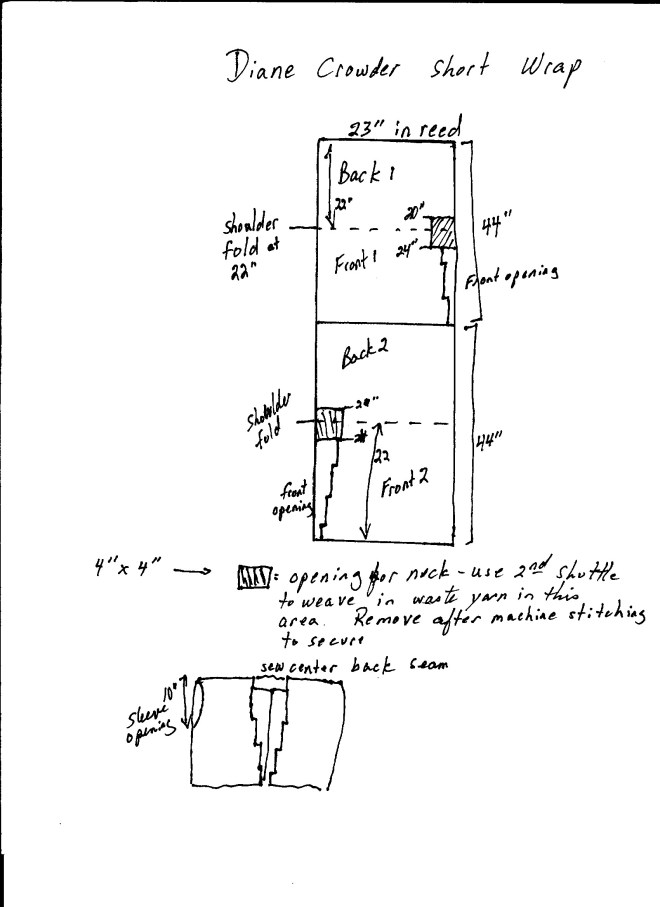 Diane Crowder Short Wrap
23" in reed
Back 1
22"
20"
Shoulder
fold at
22"
24"
Front 1
44"
Front opening
Back 2
Shoulder
fold
20"
22
44"
Front 2
front
opening
4" x 4" → = opening for neck - use 2nd shuttle
to weave in waste yarn in this
area. Remove after machine stitching
to secure
sew center back seam
10"
sleeve
opening